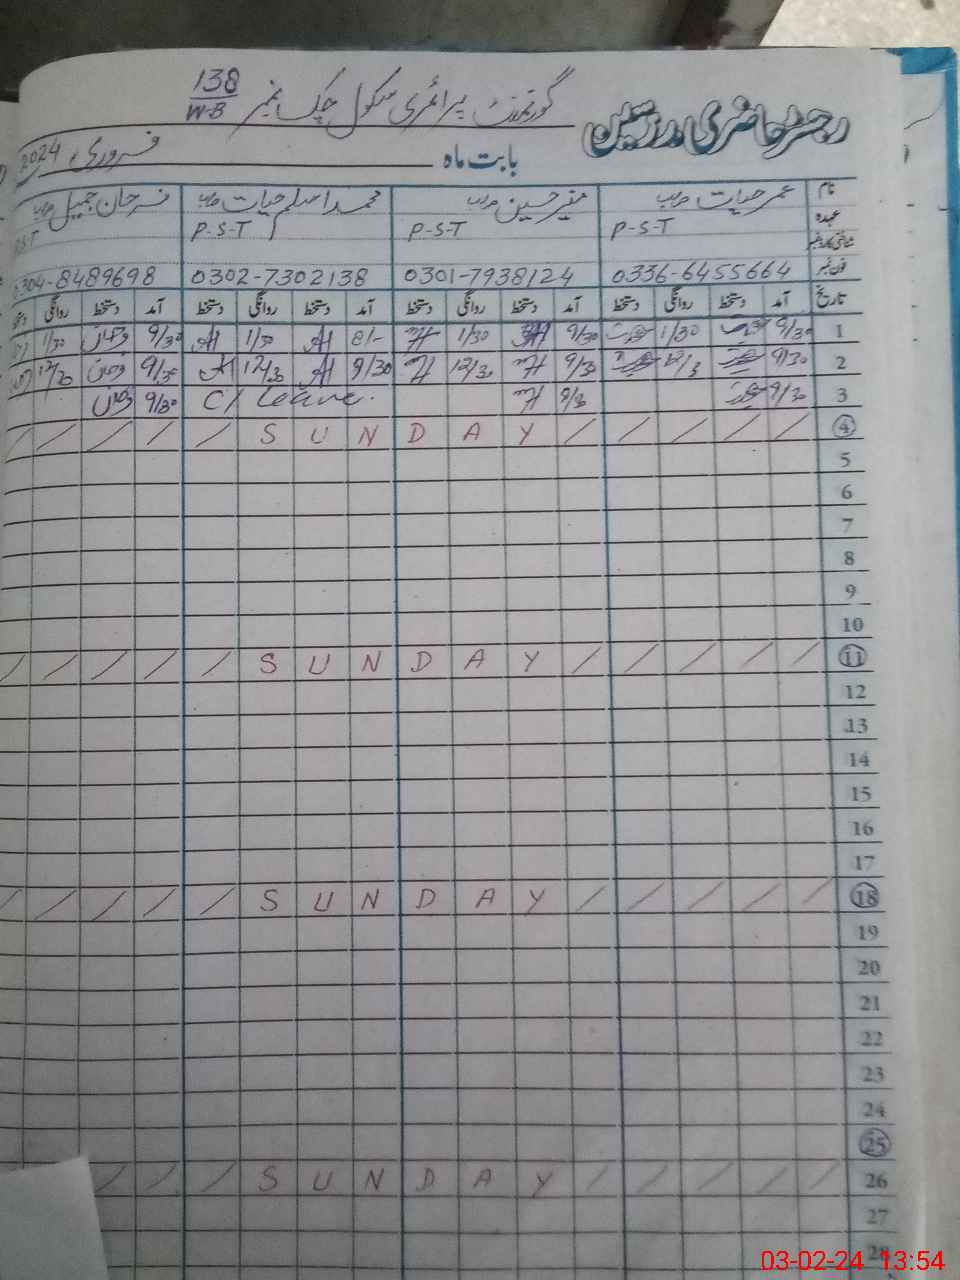 رجسٹر حاضری مدرسین گورنمنٹ پرائمری سکول چک نمبر 138/W-B
بابت ماہ فروری 2024
نام عمر حیات منیر حسین محمد اسلم حیات فرحان جمیل
عہدہ P-S-T P-S-T P-S-T P.S.T
شناختی کارڈ نمبر
فون نمبر 0336-6455664 0301-7938124 0302-7302138 0304-8489698
تاریخ آمد دستخط روانگی دستخط آمد دستخط روانگی دستخط آمد دستخط روانگی دستخط آمد دستخط روانگی
1 9/30 1/30 9/30 1/30 8/- 1/30 9/30 1/30
2 9/30 12/3 9/30 12/30 9/30 12/30 9/30 12/30
3 9/30 9/30 C/ Leave. 9/30
4 / / / / / S U N D A Y / / / / /
5
6
7
8
9
10
11 / / / / / S U N D A Y / / / / /
12
13
14
15
16
17
18 / / / / / S U N D A Y / / / / /
19
20
21
22
23
24
25
26 / / / / / S U N D A Y / / /
27
28
03-02-24 13:54